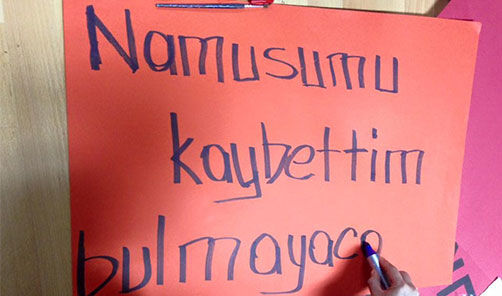 Namusumu
kaybettim
bulmayaca